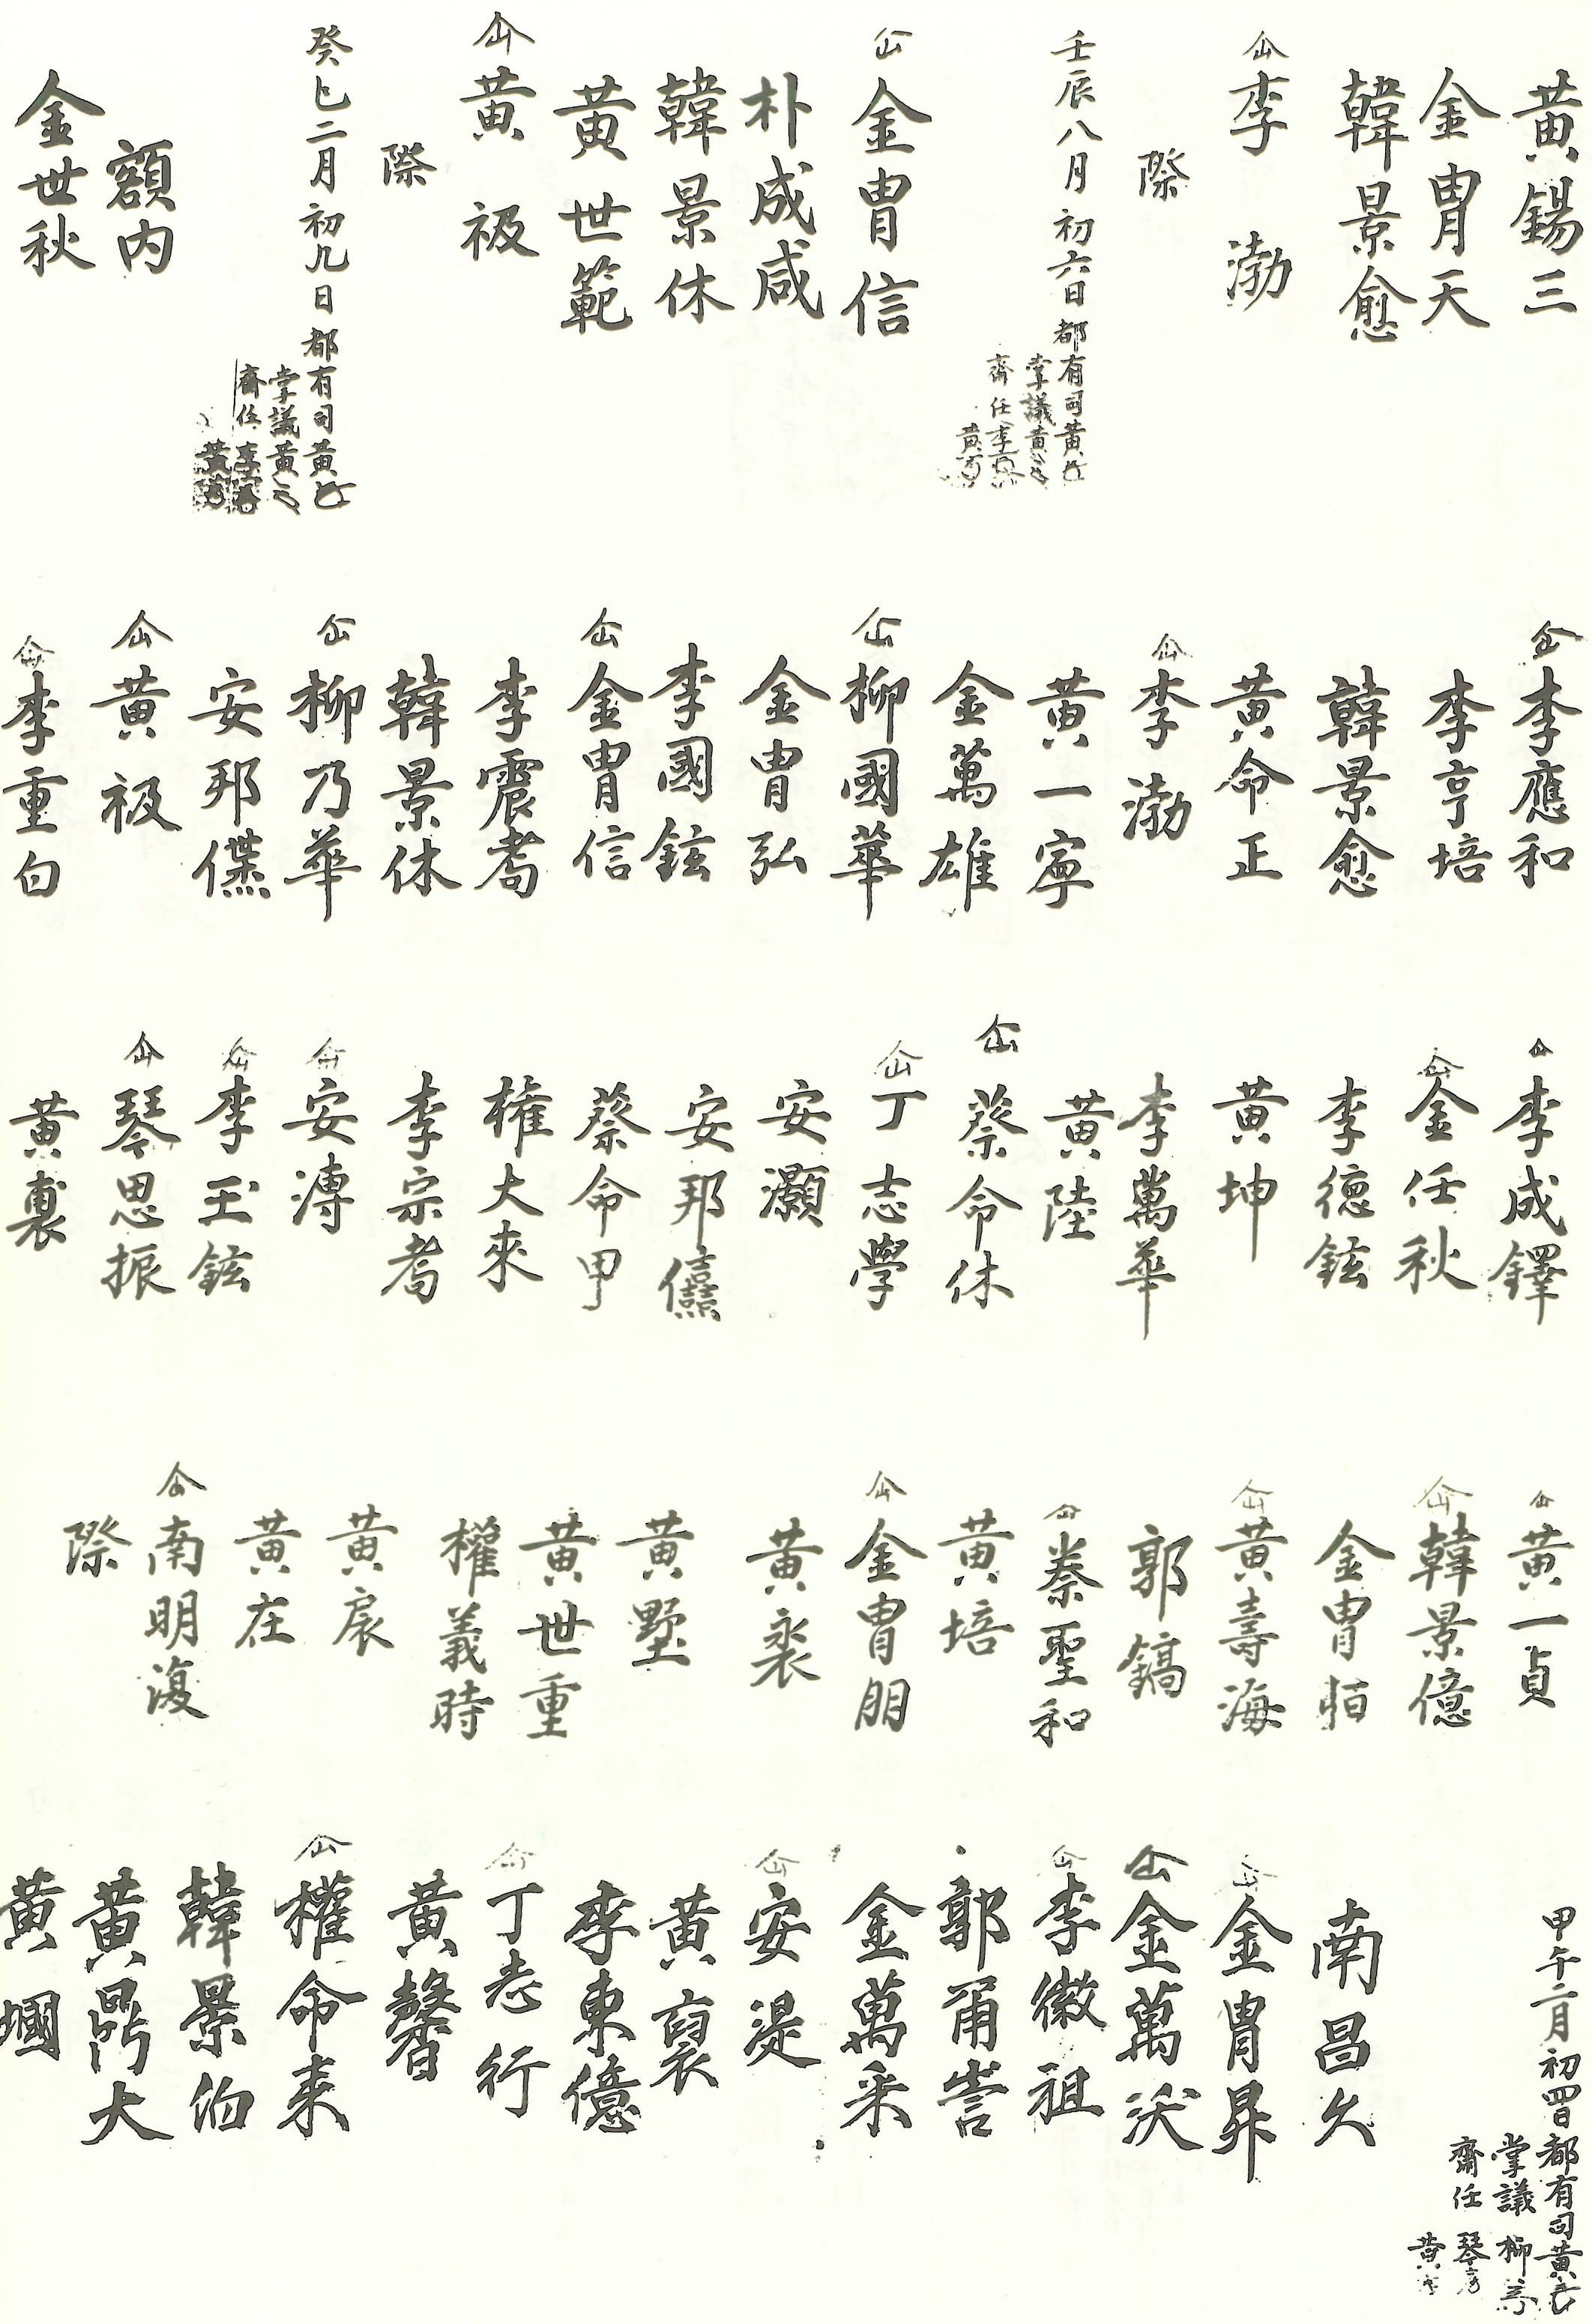 黃錫三
金胄天
韓景愈
仚李渤
際
壬辰八月初六日都有司黃
掌議黃
齋任李
黃
仚金胄信
朴成咸
韓景休
黃世範
仚黃祋
際
癸巳二月初九日都有司黃
掌議黃
齋任李
黃
額內
金世秋
仚李應和
李亨培
韓景愈
黃命正
仚李渤
黃一寧
金萬雄
仚柳國華
金胄弘
李國鉉
仚金胄信
李震耇
韓景休
仚柳乃華
安邦僷
仚黃
仚李重白
仚李成鐸
仚金任秋
李德鉉
黃坤
李萬華
黃陸
仚蔡命休
仚丁志學
安灝
安邦
蔡命甲
權大來
李宗耇
仚安漙
仚李玉鉉
仚琴思振
黃
仚黃一貞
仚韓景億
金胄
仚黃壽海
郭鎬
仚蔡聖和
黃培
仚金胄朋
黃裘
黃墅
黃世重
權義時
黃扆
黃在
仚南明復
際
甲午二月初四日都有司黃
掌議柳
齋任琴
黃
南昌久
仚金胄昇
仚金萬沃
仚李徽祖
郭甬
金萬采
仚安湜
黃裏
李東億
仚丁志行
黃馨
仚權命來
韓景伯
黃鼎大
黃